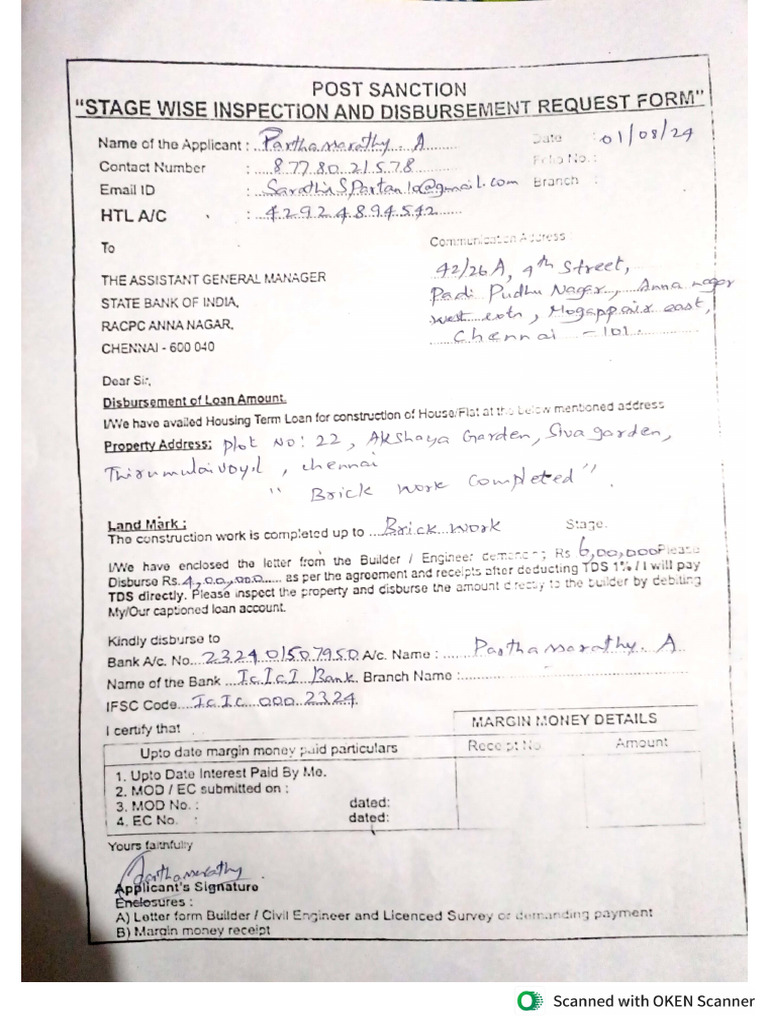 POST SANCTION
"STAGE WISE INSPECTION AND DISBURSEMENT REQUEST FORM"
Name of the Applicant : Parthasarathy. A Date : 01/08/24
Contact Number : 87780 21578 Folio No. :
Email ID : @gmail.com Branch :
HTL A/C : 42924894542
To Communication Address
THE ASSISTANT GENERAL MANAGER 42/26A, 9th Street,
STATE BANK OF INDIA, Padi Pudhu Nagar, Anna nagar
RACPC ANNA NAGAR, west extn, Mogappair east,
CHENNAI - 600 040 Chennai - 101
Dear Sir,
Disbursement of Loan Amount.
I/We have availed Housing Term Loan for construction of House/Flat at the below mentioned address
Property Address: Plot No: 22, Akshaya Garden, Siva garden,
Thirumulaivoyil, chennai
"Brick work Completed".
Land Mark :
The construction work is completed up to Brick work Stage.
I/We have enclosed the letter from the Builder / Engineer demanding Rs 6,00,000 Please
Disburse Rs. 4,00,000 as per the agreement and receipts after deducting TDS 1% / I will pay
TDS directly. Please inspect the property and disburse the amount directly to the builder by debiting
My/Our captioned loan account.
Kindly disburse to
Bank A/c. No. 232401507950 A/c. Name : Parthasarathy. A
Name of the Bank ICICI Bank Branch Name :
IFSC Code ICIC 000 2324
I certify that
MARGIN MONEY DETAILS
Upto date margin money paid particulars Receipt No. Amount
1. Upto Date Interest Paid By Me.
2. MOD / EC submitted on :
3. MOD No. : dated:
4. EC No. : dated:
Yours faithfully
Parthasarathy
Applicant's Signature
Enclosures :
A) Letter form Builder / Civil Engineer and Licenced Survey or demanding payment
B) Margin money receipt
Scanned with OKEN Scanner